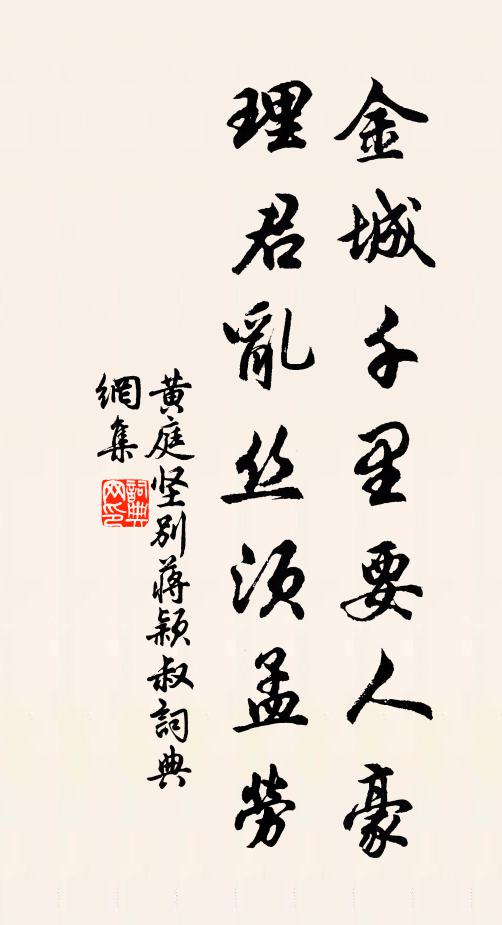 金城千里要人豪
理君亂丝須孟勞
黄庭坚别蒋颖叔詞典
網集
詞典
网印